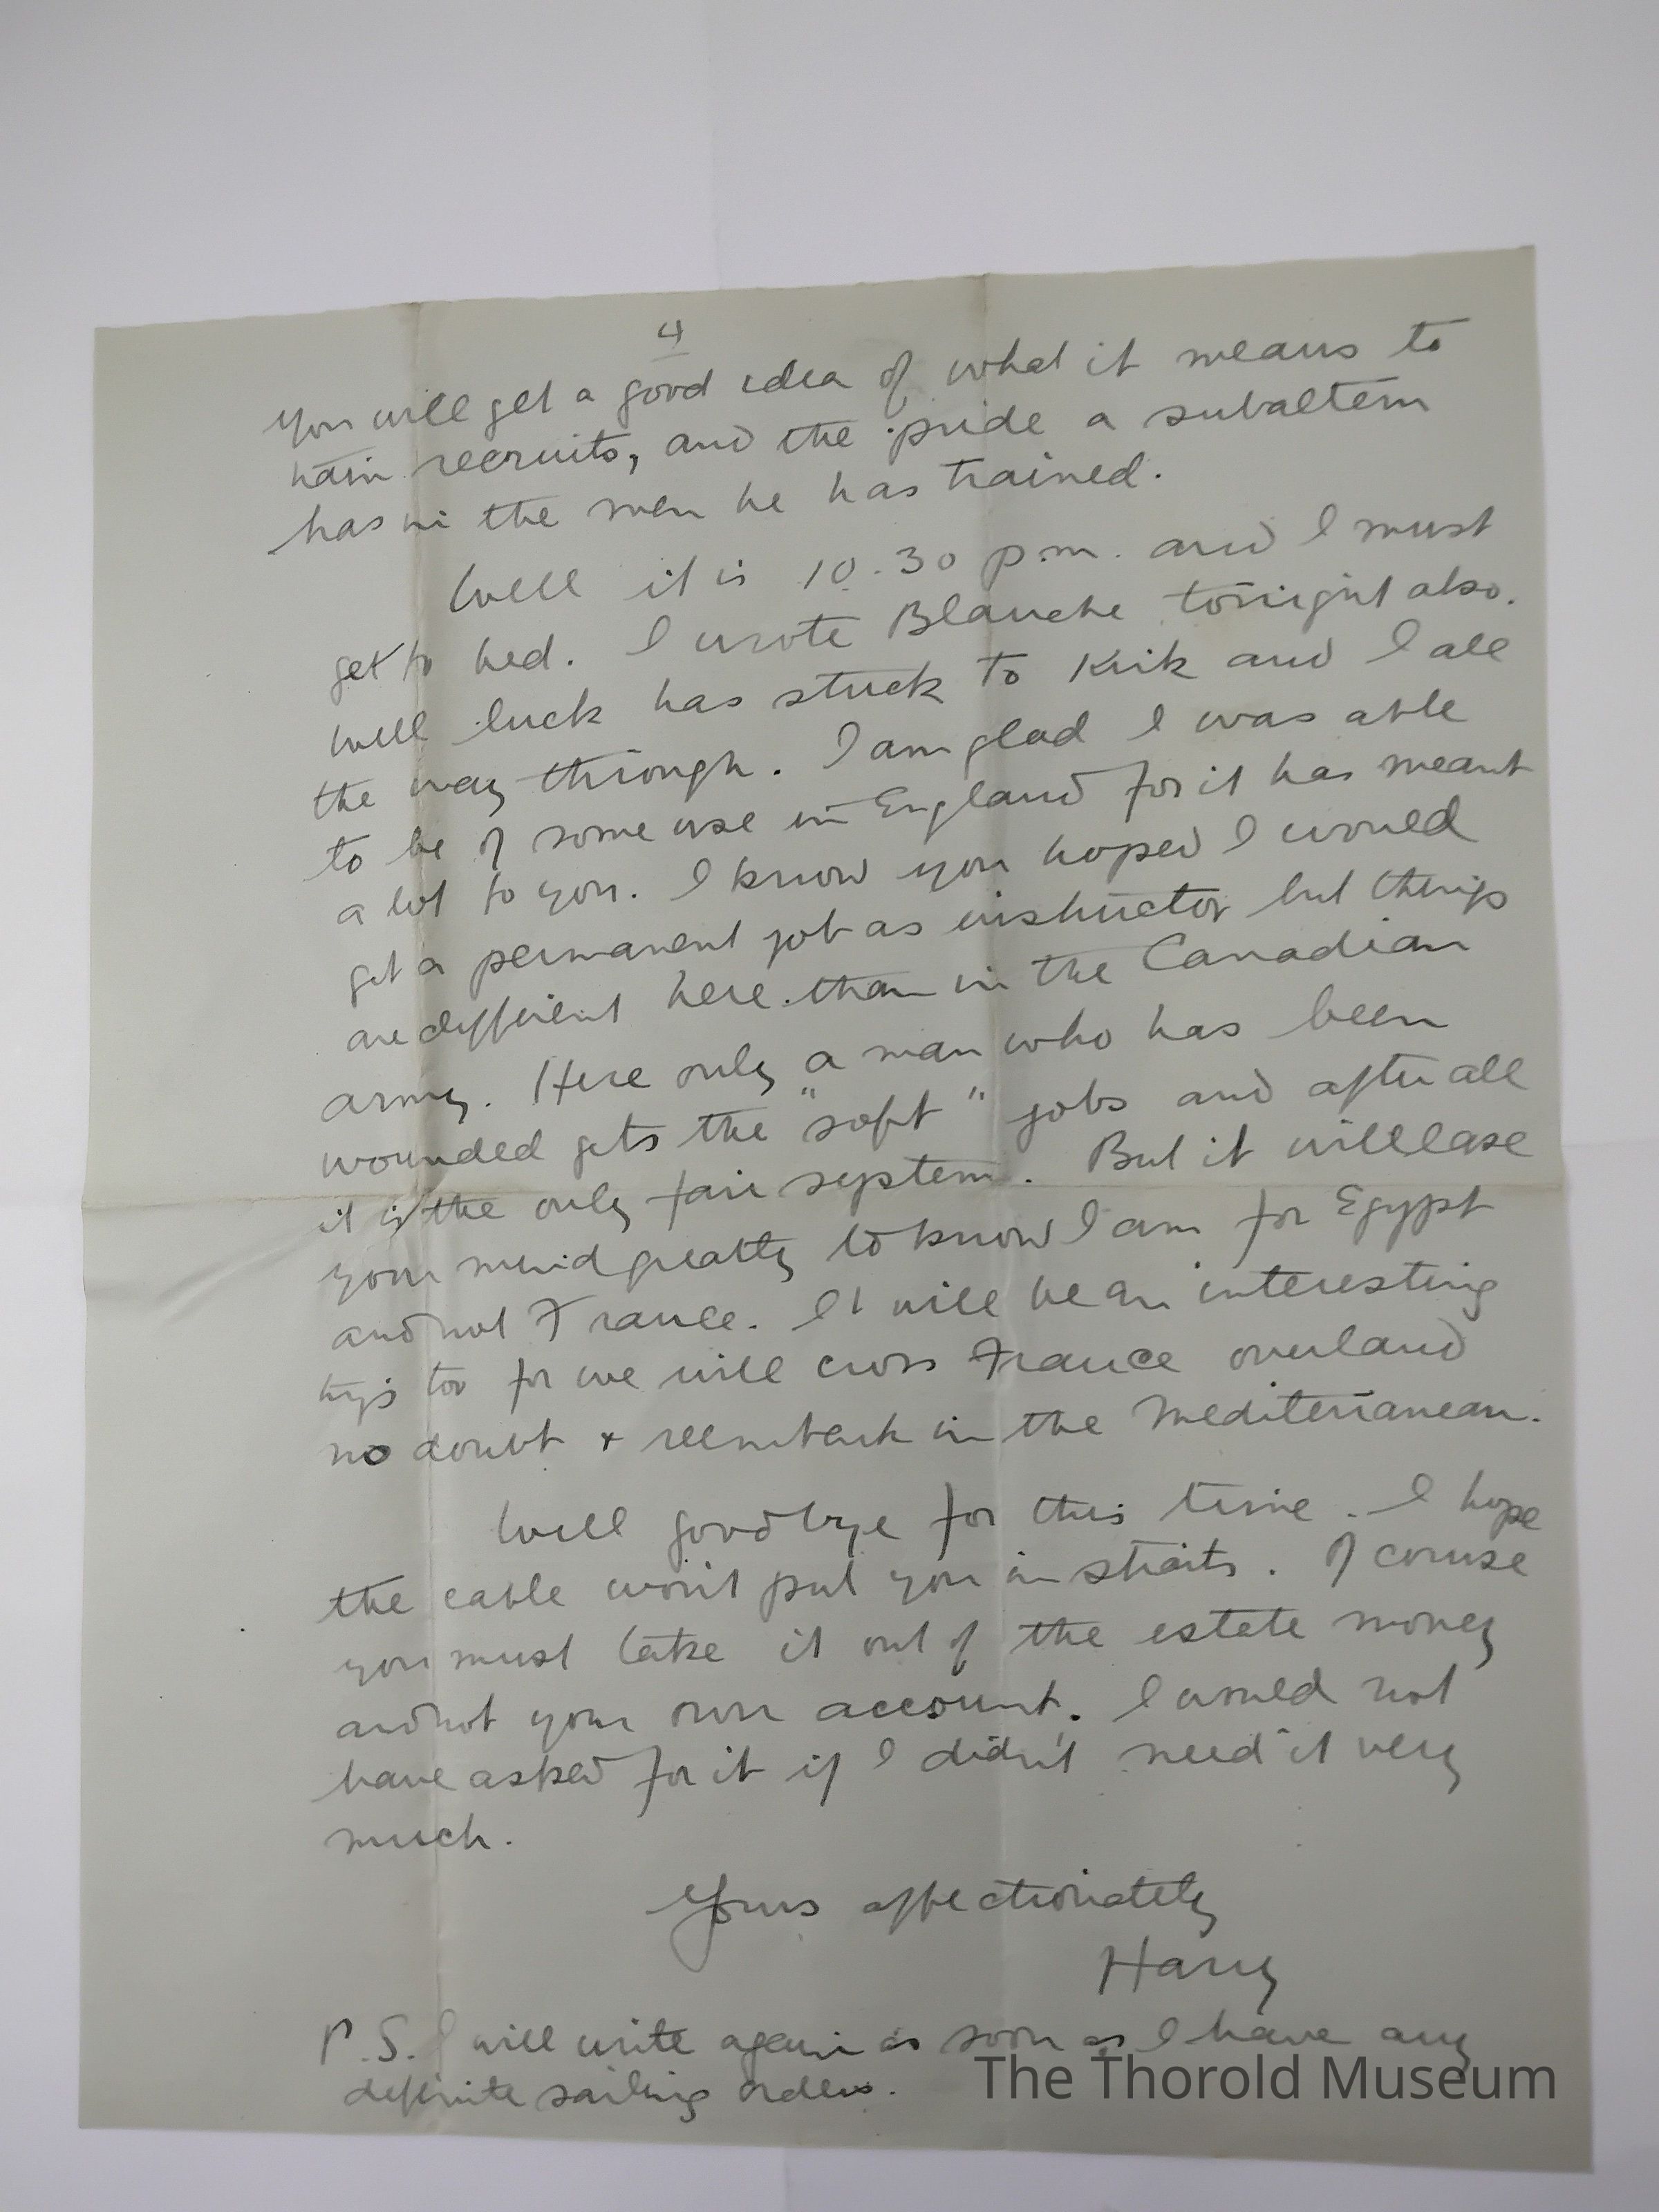 4
You will get a good idea of what it means to
train recruits, and the pride a subaltern
has in the men he has trained.
Well it is 10.30 p.m. and I must
get to bed. I wrote Blanche tonight also.
Well luck has stuck to Kirk and I all
the way through. I am glad I was able
to be of some use in England for it has meant
a lot to you. I know you hoped I would
get a permanent job as instructor but things
are different here than in the Canadian
army. Here only a man who has been
wounded gets the "soft" jobs and after all
it is the only fair system. But it will ease
your mind greatly to know I am for Egypt
and not France. It will be an interesting
trip too for we will cross France overland
no doubt + reembark in the Mediterranean.
Well goodbye for this time. I hope
the cable won't put you in straits. Of course
you must take it out of the estate money
and not your own account. I would not
have asked for it if I didn't need it very
much.
Yours affectionately
Harry
P.S. I will write again as soon as I have any
definite sailing orders.
The Thorold Museum